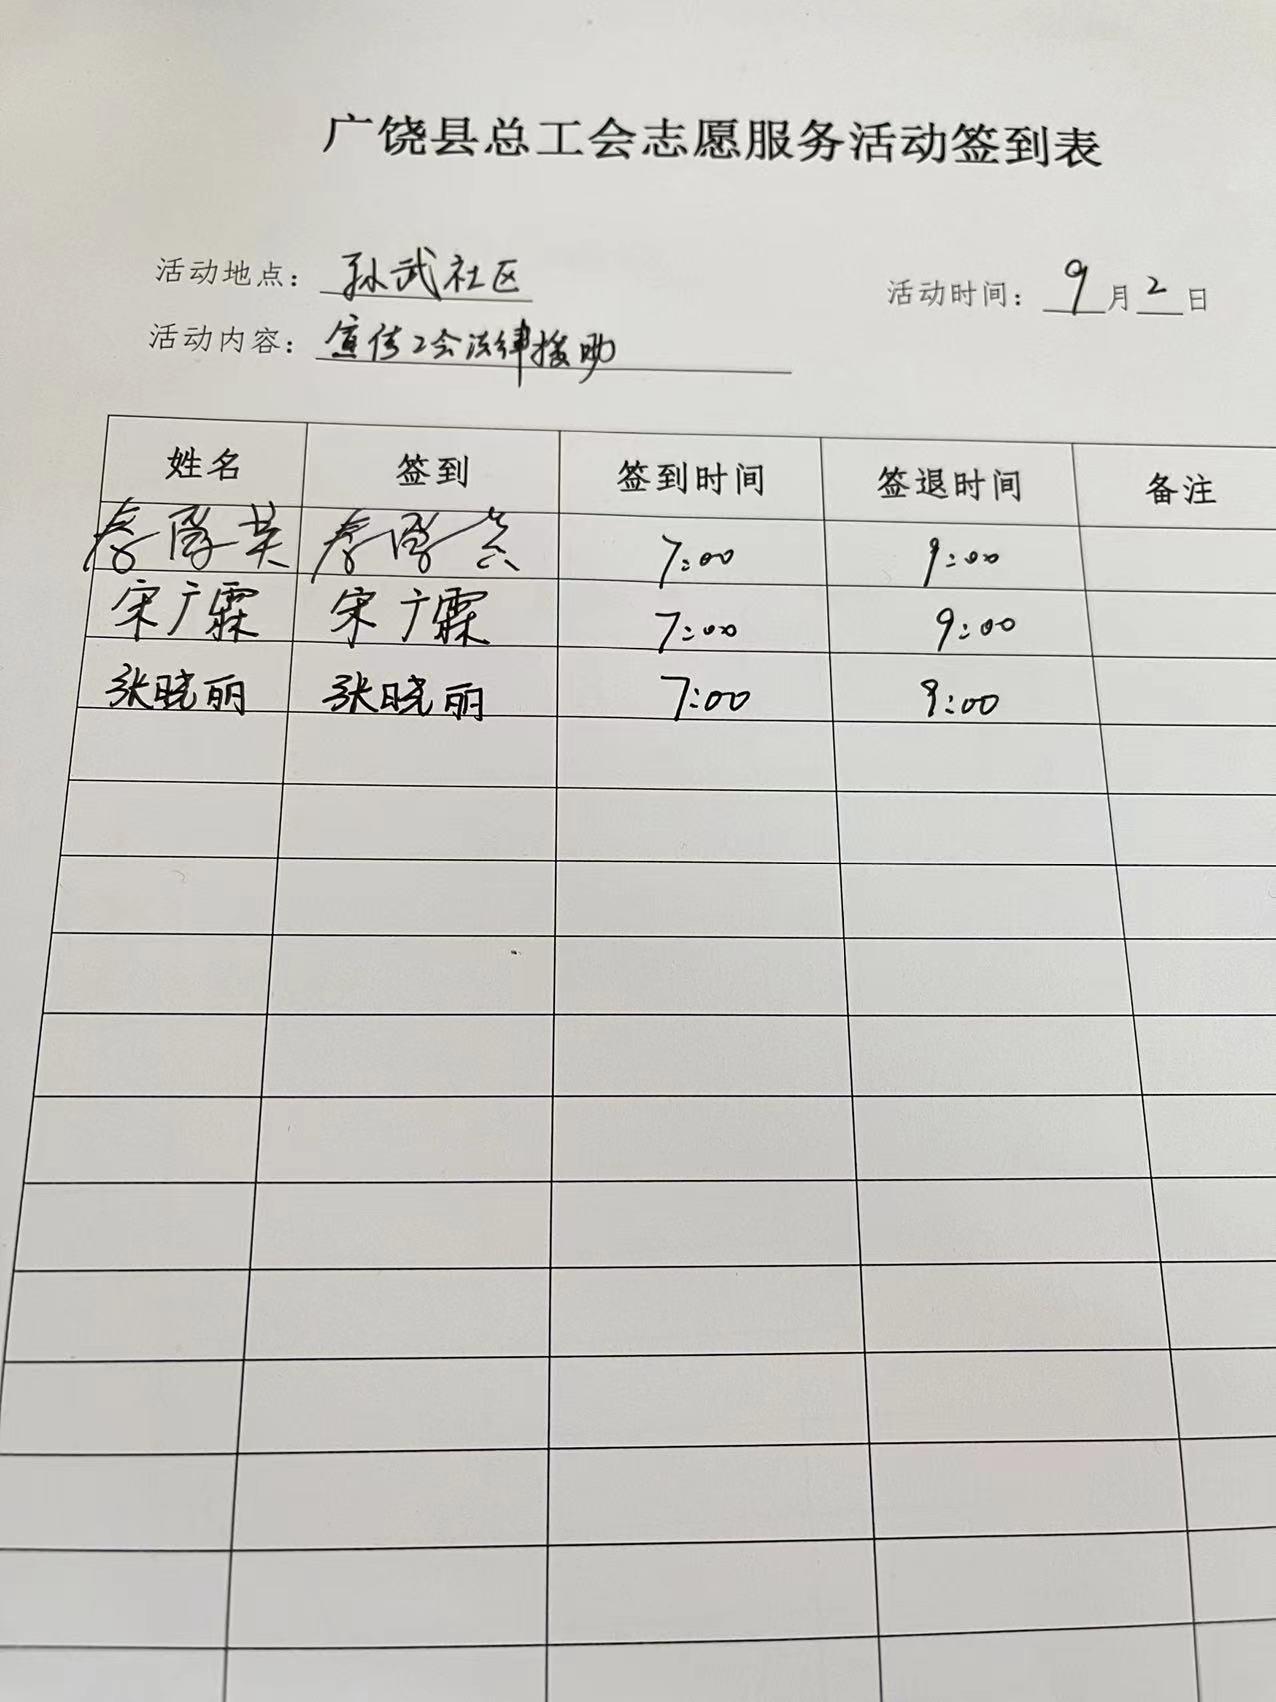 广饶县总工会志愿服务活动签到表
活动地点：孙武社区 活动时间：9月2日
活动内容：宣传工会法律援助
姓名 签到 签到时间 签退时间 备注
7:00 9:00
宋广霖 宋广霖 7:00 9:00
张晓丽 张晓丽 7:00 9:00